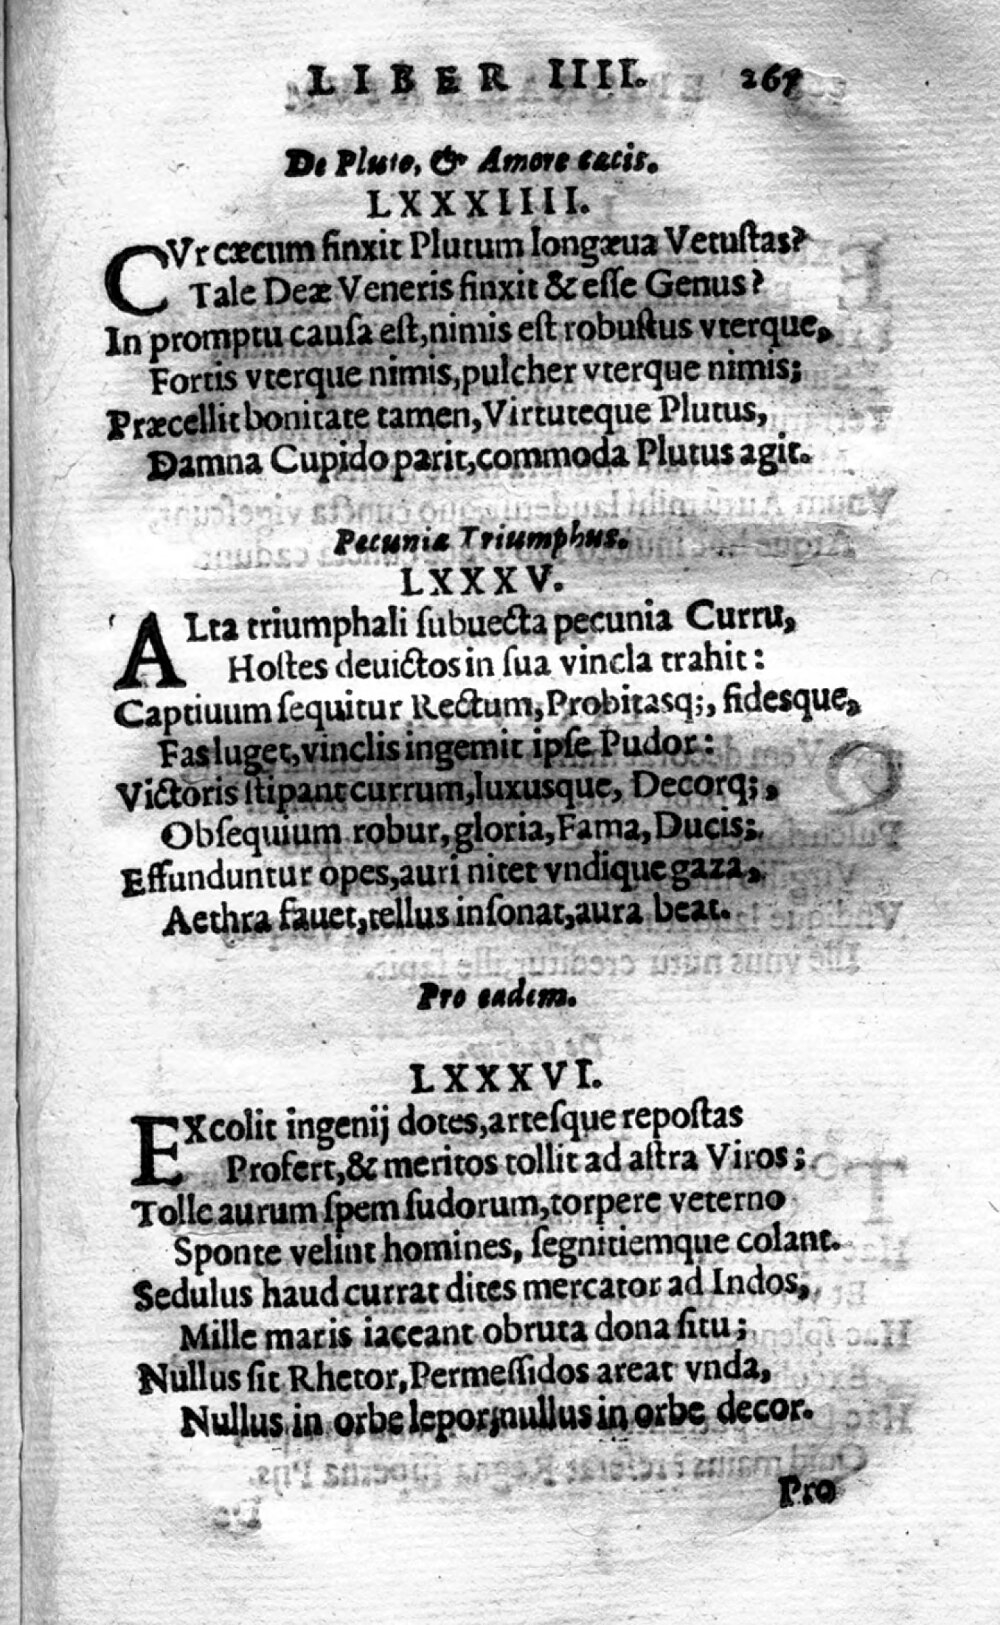 LIBER IIII. 267
De Pluto, & Amore cæcis.
LXXXIIII.
CVr cæcum finxit Plutum longæua Vetuſtas?
Tale Deæ Veneris finxit & eſſe Genus?
In promptu cauſa eſt, nimis eſt robuſtus vterque,
Fortis vterque nimis, pulcher vterque nimis;
Præcellit bonitate tamen, Virtuteque Plutus,
Damna Cupido parit, commoda Plutus agit.
Pecuniæ Triumphus.
LXXXV.
ALta triumphali ſubuecta pecunia Curru,
Hoſtes deuictos in ſua vincla trahit:
Captiuum ſequitur Rectum, Probitasq;, fidesque,
Fas luget, vinclis ingemit ipſe Pudor:
Victoris ſtipant currum, luxusque, Decorq;,
Obſequium robur, gloria, Fama, Ducis;
Effunduntur opes, auri nitet vndique gaza,
Aethra fauet, tellus inſonat, aura beat.
Pro eadem.
LXXXVI.
EXcolit ingenij dotes, artesque repoſtas
Profert, & meritos tollit ad aſtra Viros;
Tolle aurum ſpem ſudorum, torpere veterno
Sponte velint homines, ſegnitiemque colant.
Sedulus haud currat dites mercator ad Indos,
Mille maris iaceant obruta dona ſitu;
Nullus ſit Rhetor, Permeſſidos areat vnda,
Nullus in orbe lepor, nullus in orbe decor.
Pro